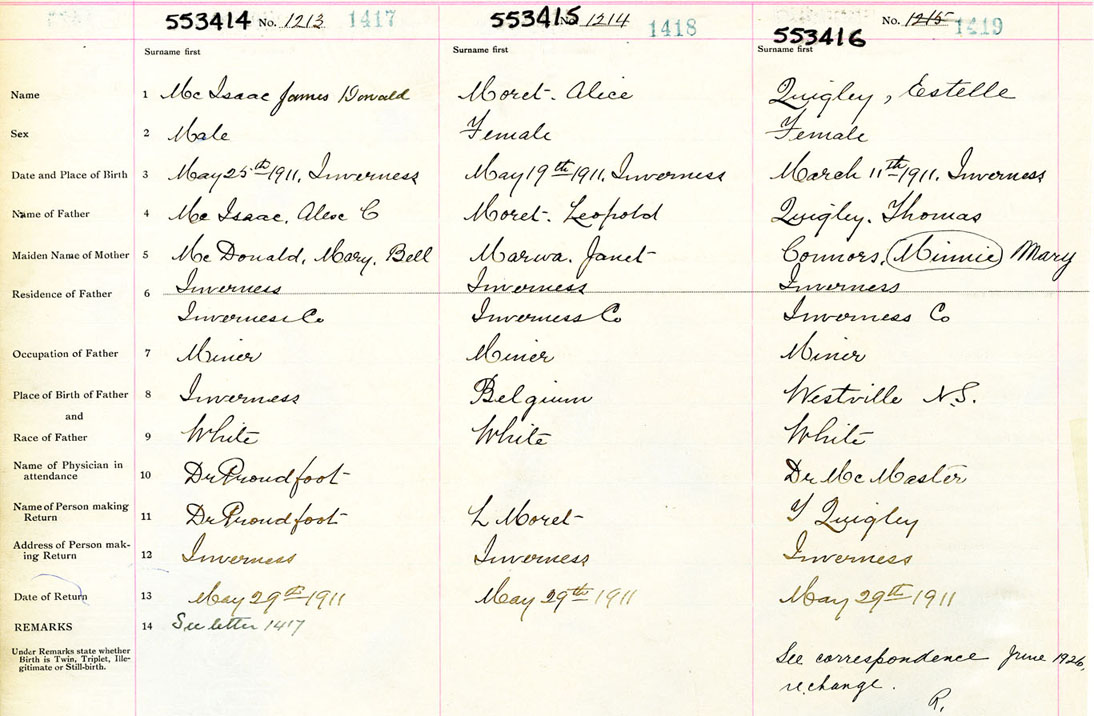 553414 No. 1213 1417 553415 No 1214 1418 553416 No. 1215 1419
Surname first Surname first Surname first
Name 1 Mc Isaac James Donald Moret. Alice Quigley, Estelle
Sex 2 Male Female Female
Date and Place of Birth 3 May 25th 1911. Inverness May 19th 1911. Inverness March 11th 1911. Inverness
Name of Father 4 Mc Isaac, Alex C Moret. Leopold Quigley. Thomas
Maiden Name of Mother 5 Mc Donald, Mary, Bell Marwa. Janet Connors, Minnie Mary
Residence of Father 6 Inverness Inverness Inverness
Inverness Co Inverness Co Inverness Co
Occupation of Father 7 Miner Miner Miner
Place of Birth of Father 8 Inverness Belgium Westville N.S.
and
Race of Father 9 White White White
Name of Physician in
attendance 10 Dr Proudfoot Dr Mc Master
Name of Person making
Return 11 Dr Proudfoot L Moret T Quigley
Address of Person mak-
ing Return 12 Inverness Inverness Inverness
Date of Return 13 May 29th 1911 May 29th 1911 May 29th 1911
REMARKS 14 See letter 1417
Under Remarks state whether
Birth is Twin, Triplet, Ille-
gitimate or Still-birth.
See correspondence June 1926,
re change.
R.